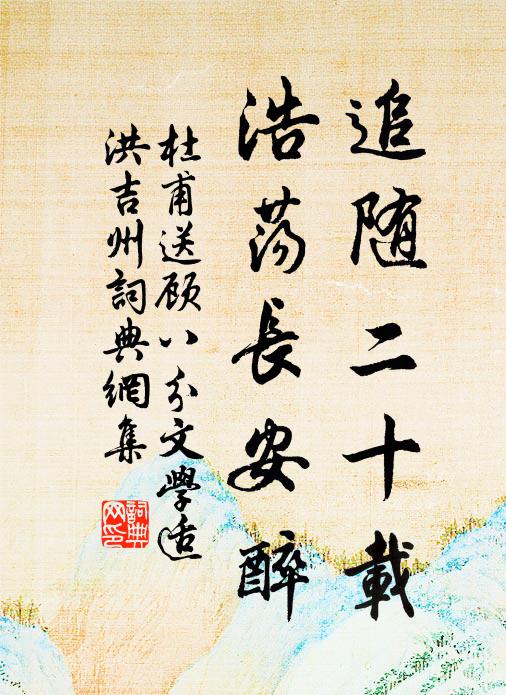 追随二十載
浩荡長安醉
杜甫送顾八分文學适
洪吉州詞典網集
詞典網印